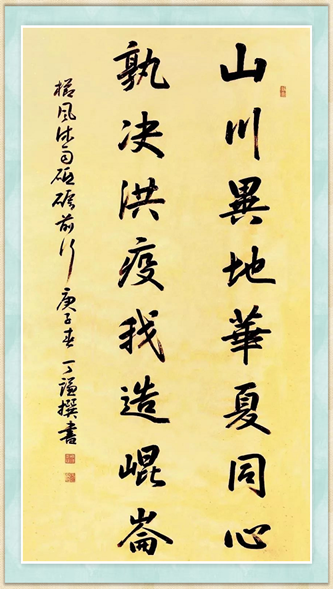 山川異地華夏同心
孰决洪疫我造崐崙
櫛風沐雨砥礪前行 庚子春 丁謙撰書